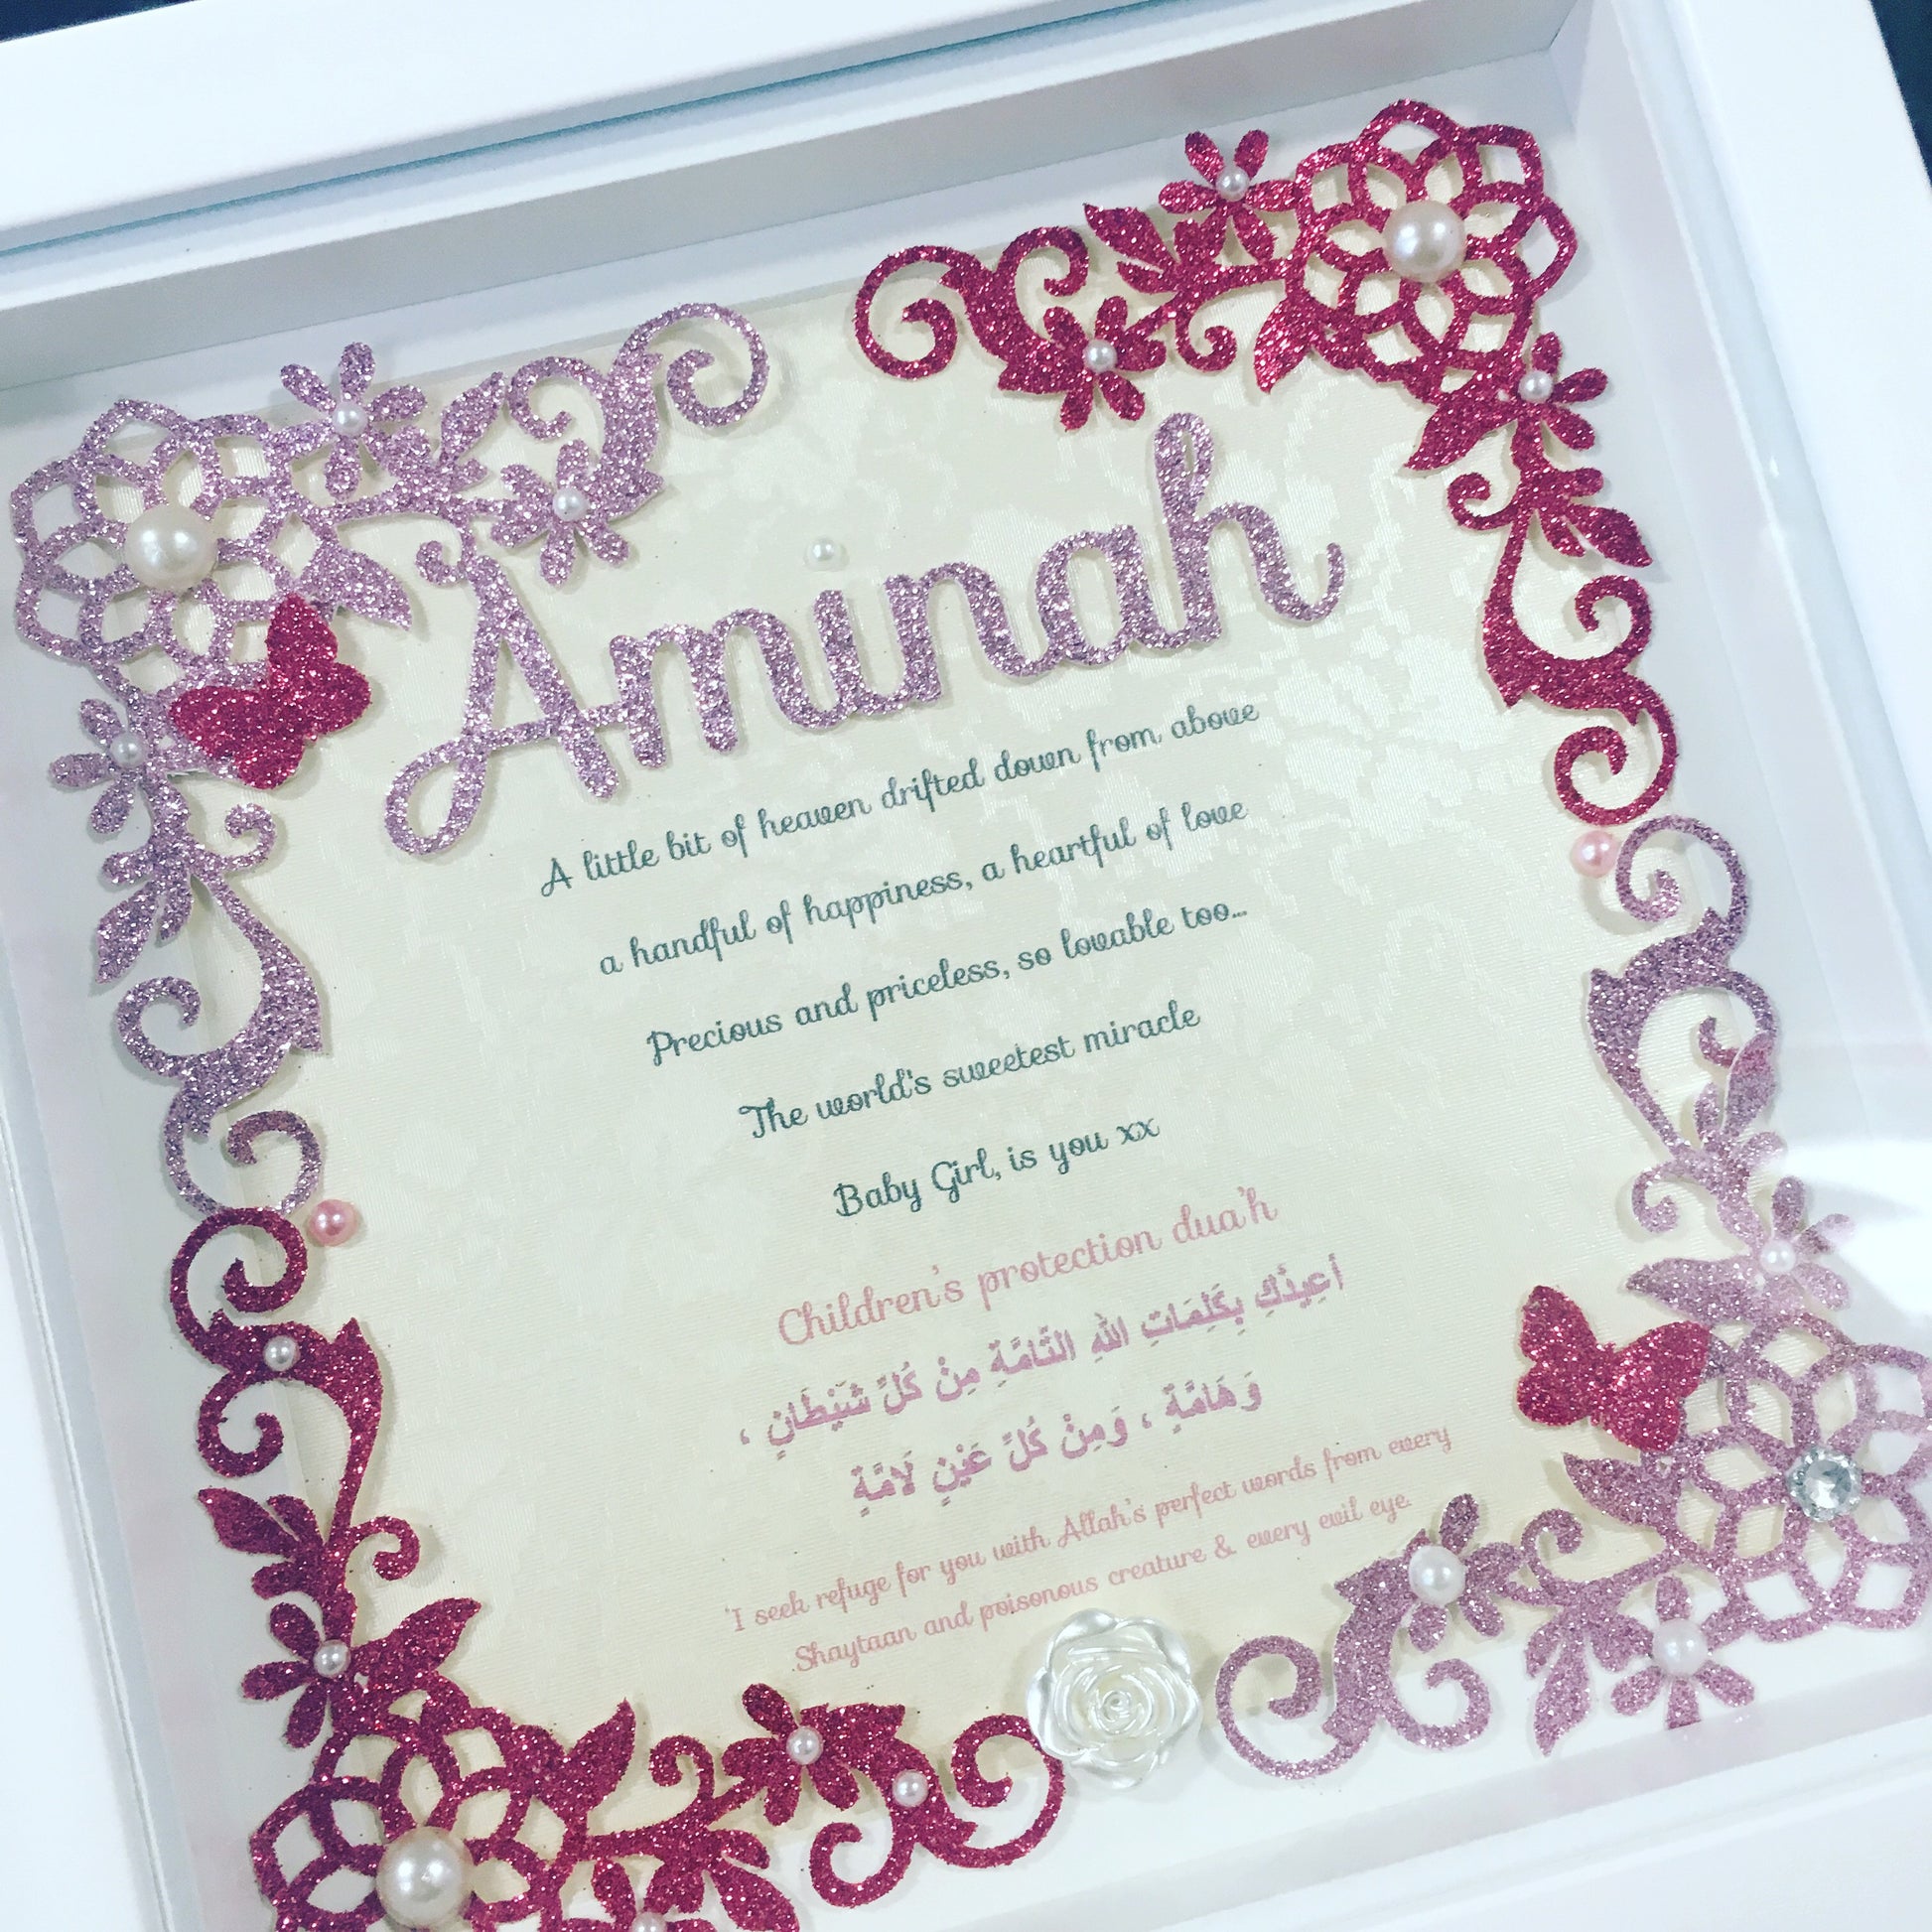 Aminah
A little bit of heaven drifted down from above
a handful of happiness, a heartful of love
Precious and priceless, so lovable too...
The world's sweetest miracle
Baby Girl, is you xx
Children's protection dua'h
أعِيذُكِ بِكَلِمَاتِ اللهِ التَّامَّةِ مِنْ كُلِّ شَيْطَانٍ ،
وَهَامَّةٍ ، وَمِنْ كُلِّ عَيْنٍ لَامَّةٍ
'I seek refuge for you with Allah's perfect words from every
Shaytaan and poisonous creature & every evil eye.